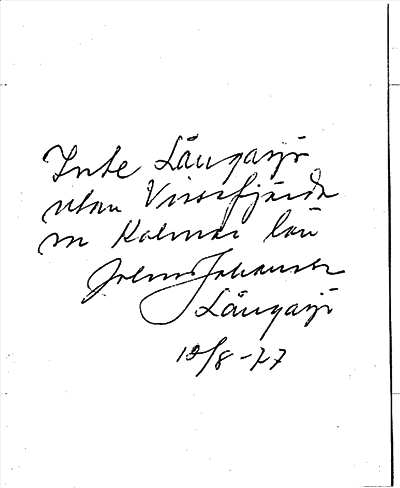 Inte Långasjö
utan Vissefjärda
m Kalmar län
John Johansson
Långasjö
12/8-77